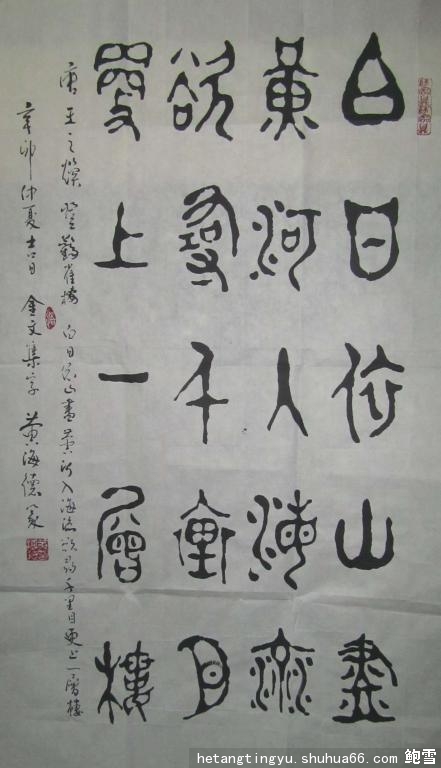 白日依山盡
黄河入海流
欲窮千里目
更上一層樓
唐王之 登鸛雀樓 白日依山盡黄河入海流欲窮千里目更上一層樓
辛卯仲夏吉日 金文集字 黄海德篆
hetangtingyu.shuhua66.com 鲍雪